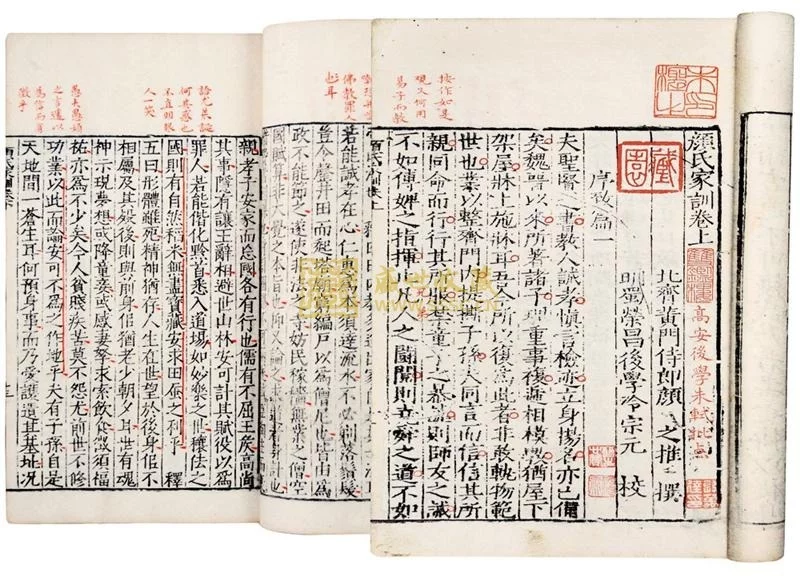 顏氏家訓卷上
北齊黃門侍郎顏之推撰
高安後學朱軾批點
明蜀榮昌後學冷宗元校
序致篇一
夫聖賢之書教人誠孝慎言檢迹立身揚名亦已備
矣魏晉以來所著諸子理重事複遞相模斅猶屋下
架屋牀上施牀耳吾今所以復為此者非敢軌物範
世也業以整齊門內提撕子孫夫同言而信信其所
親同命而行行其所服禁童子之暴謔則師友之誡
不如傅婢之指揮止凡人之鬬鬩則堯舜之道不如
按作如是
觀又何用
易子而教
若能誠孝在心仁惠為本須達流水不必剃落鬚髮
豈令罄井田而起塔廟窮編戶以為僧尼也皆由為
政不能節之遂使非法之寺妨民稼穡無業之僧空
國賦算非大覺之本旨也
親孝子安家而忘國各有行也儒有不屈王侯高尚
其事隱有讓王辭相避世山林安可計其賦役以為
罪人若能偕化黔首悉入道場如妙樂之世禳佉之
國則有自然稻米無盡寶藏安求田蚕之利乎 釋
五曰形體雖死精神猶存人生在世望於後身似不
相屬及其歿後則與前身似猶老少朝夕耳世有魂
神示現夢想或降童妾或感妻孥求索飲食徵須福
祐亦為不少矣今人貧賤疾苦莫不怨尤前世不修
功業以此而論安可不為之作地乎夫有子孫自是
天地間一蒼生耳何預身事而乃愛護遺其基址况